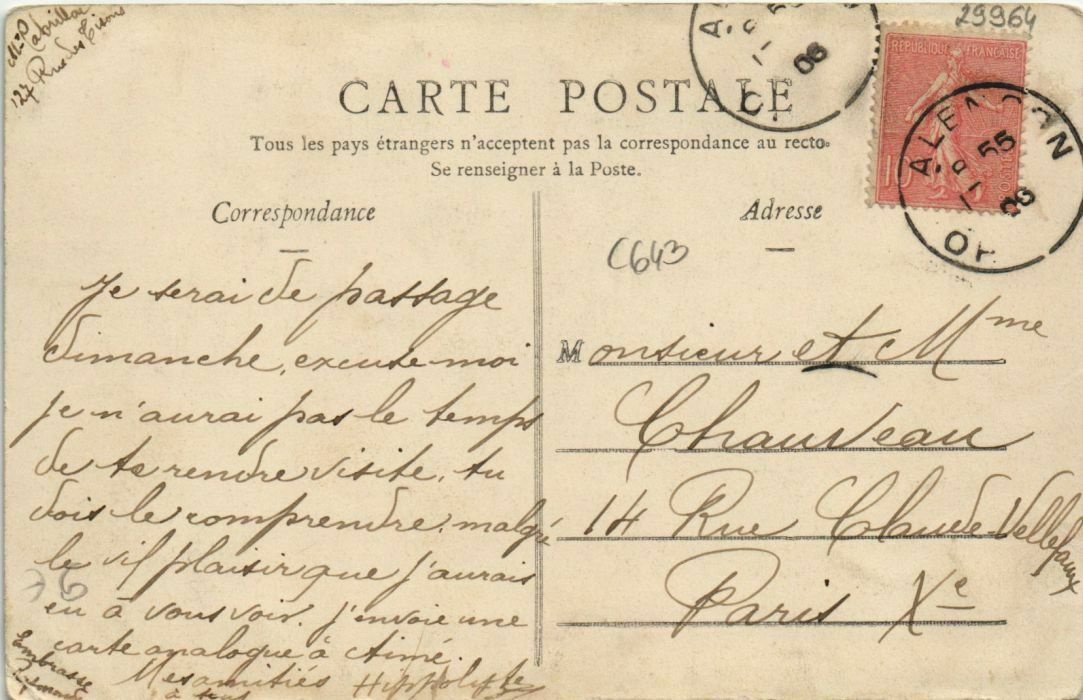 127 Rue des
29964
RÉPUBLIQUE FRANÇAISE
10
ALENÇON
55
08
OR
CARTE POSTALE
Tous les pays étrangers n'acceptent pas la correspondance au recto.
Se renseigner à la Poste.
Correspondance
Adresse
C643
Je serai de passage
dimanche, excuse-moi
je n'aurai pas le temps
de te rendre visite, tu
dois le comprendre, malgré
le vif plaisir que j'aurais
eu à vous voir. J'envoie une
carte analogue à Aimé.
Mes amitiés Hippolyte
à tous
Embrasse
76
Monsieur et Mme
Chauveau
14 Rue Claude Vellefaux
Paris Xe